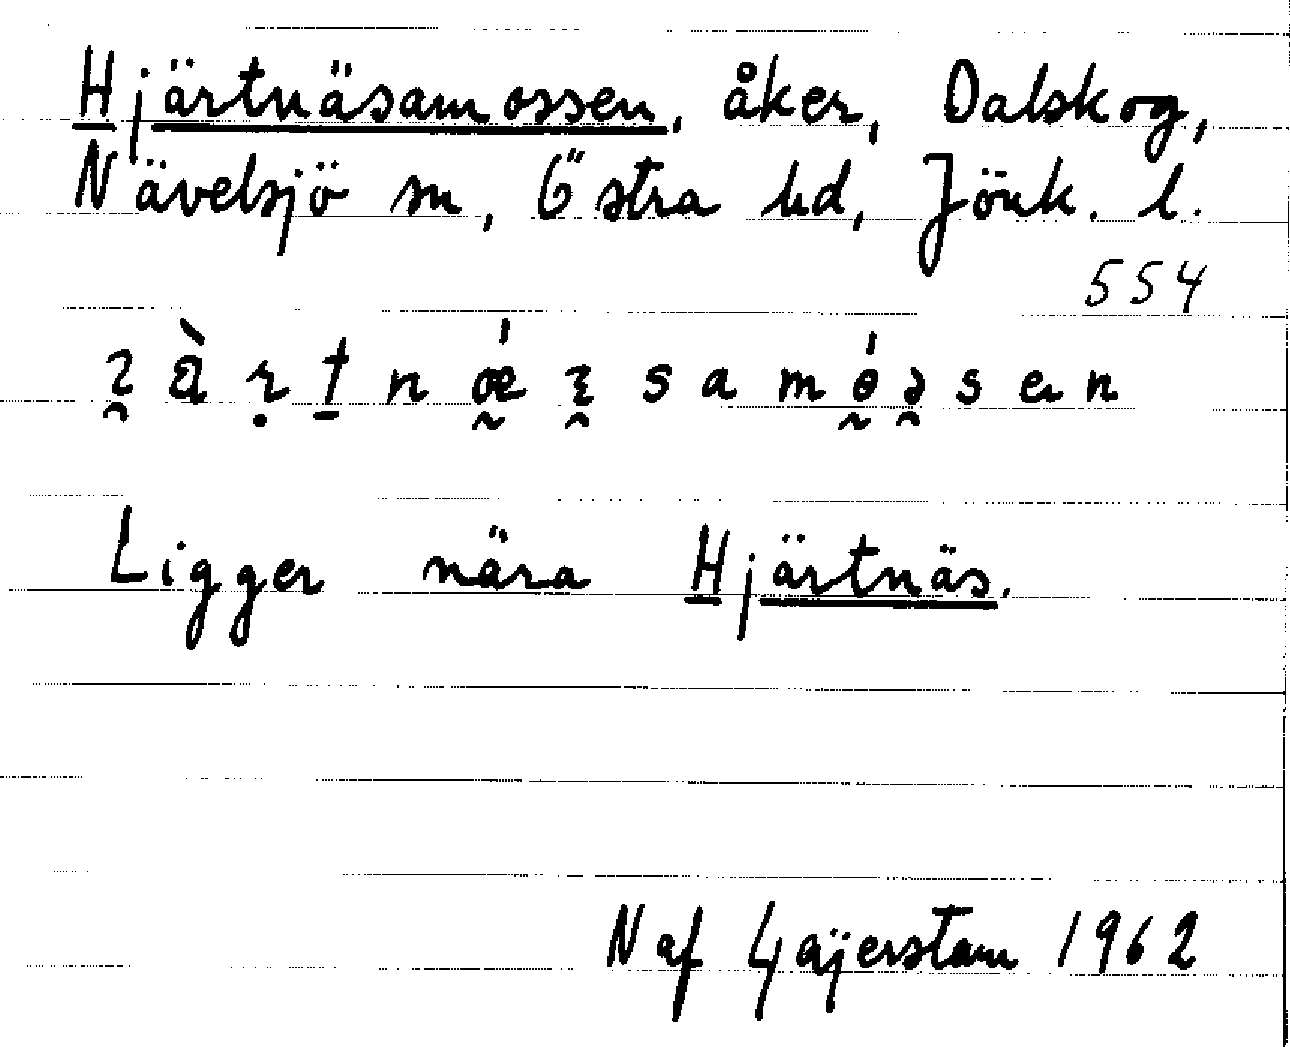 Hjärtnäsamossen, åker, Dalskog,
Nävelsjö sn, Östra hd, Jönk. l.
554
Ligger nära Hjärtnäs.
N af Gäijerstam 1962